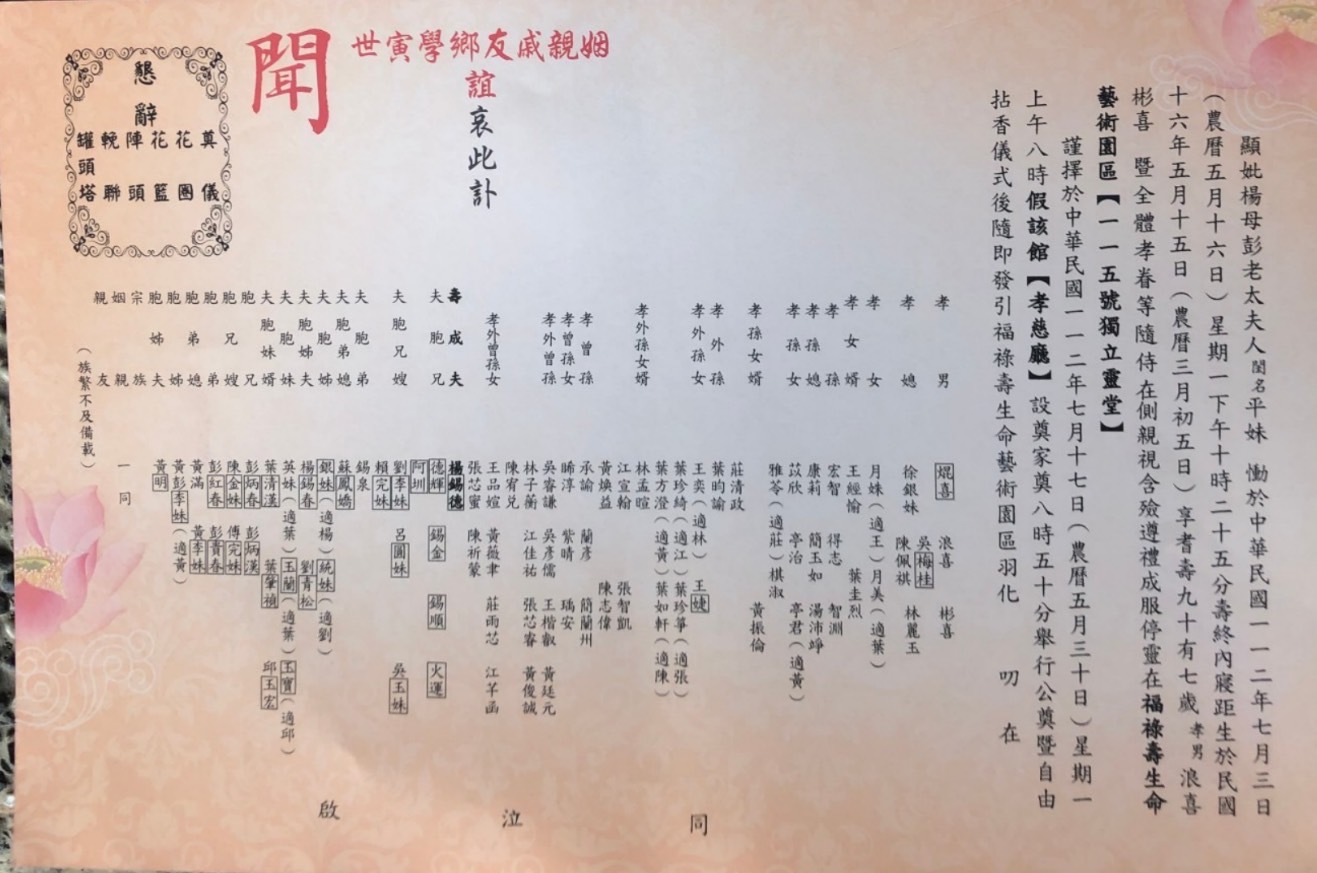 顯妣楊母彭老太夫人閨名平妹　慟於中華民國一一二年七月三日
（農曆五月十六日）星期一下午十時二十五分壽終內寢距生於民國
十六年五月十五日（農曆三月初五日）享耆壽九十有七歲孝男浪喜
彬喜　暨全體孝眷等隨侍在側親視含殮遵禮成服停靈在福祿壽生命
藝術園區【一一五號獨立靈堂】
謹擇於中華民國一一二年七月十七日（農曆五月三十日）星期一
上午八時假該館【孝慈廳】設奠家奠八時五十分舉行公奠暨自由
拈香儀式後隨即發引福祿壽生命藝術園區羽化　叨　在
姻親戚友鄉學寅世
誼哀此訃
聞
孝男　焜喜　浪喜　彬喜
孝媳　徐銀妹　吳梅桂　陳佩祺　林麗玉
孝女　月姝（適王）月美（適葉）
孝女婿　王經愉　葉圭烈
孝孫　宏智　得志　智淵
孝孫媳　康莉　簡玉如　湯沛竫
孝孫女　苡欣　亭治　亭君（適黃）
雅苓（適莊）棋淑
孝孫女婿　黃振倫
莊清政
孝外孫　葉昀諭
孝外孫女　王奕（適林）王婕
葉珍綺（適江）葉珍箏（適張）
葉方澄（適黃）葉如軒（適陳）
孝外孫女婿　林孟暄
江宣翰　張智凱
黃煥益　陳志偉
孝曾孫　承諭　蘭彥　簡蘭州
孝曾孫女　晞淳　紫晴　瑀安
孝外曾孫　吳睿謙　吳彥儒　王楷叡　黃廷元
林子蘅　江佳祐　張芯睿　黃俊誠
陳宥兌
孝外曾孫女　王品媗　黃薇聿　莊雨芯　江芊函
張芯蜜　陳祈蒙
壽成夫　楊錫德
夫胞兄　德輝　錫金　錫順　火運
阿圳
夫胞兄嫂　劉李妹　呂圓妹　吳玉妹
賴完妹
夫胞弟　錫泉
夫胞弟媳　蘇鳳嬌
夫胞姊　銀妹（適楊）統妹（適劉）
夫胞姊夫　楊錫春　劉青松
夫胞妹　英妹（適葉）玉蘭（適葉）玉寶（適邱）
夫胞妹婿　葉清漢　葉肇禎　邱玉宏
胞兄　彭炳春　彭炳漢
胞兄嫂　陳金妹　傅完妹
胞弟　彭紅春　彭貴春
胞弟媳　黃滿　黃李妹
胞姊　黃彭李妹（適黃）
胞姊夫　黃明
宗族
姻親
親友　一同
（族繁不及備載）
同　泣　啟
懇辭
奠儀
花圈
花籃
陣頭
輓聯
罐頭塔